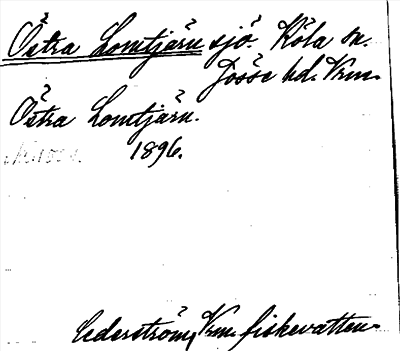 Östra Lomtjärn sjö. Köla sn.
Jösse hd. Vrm.
Östra Lomtjärn.
1896.
Cederström, Vrm. fiskevatten